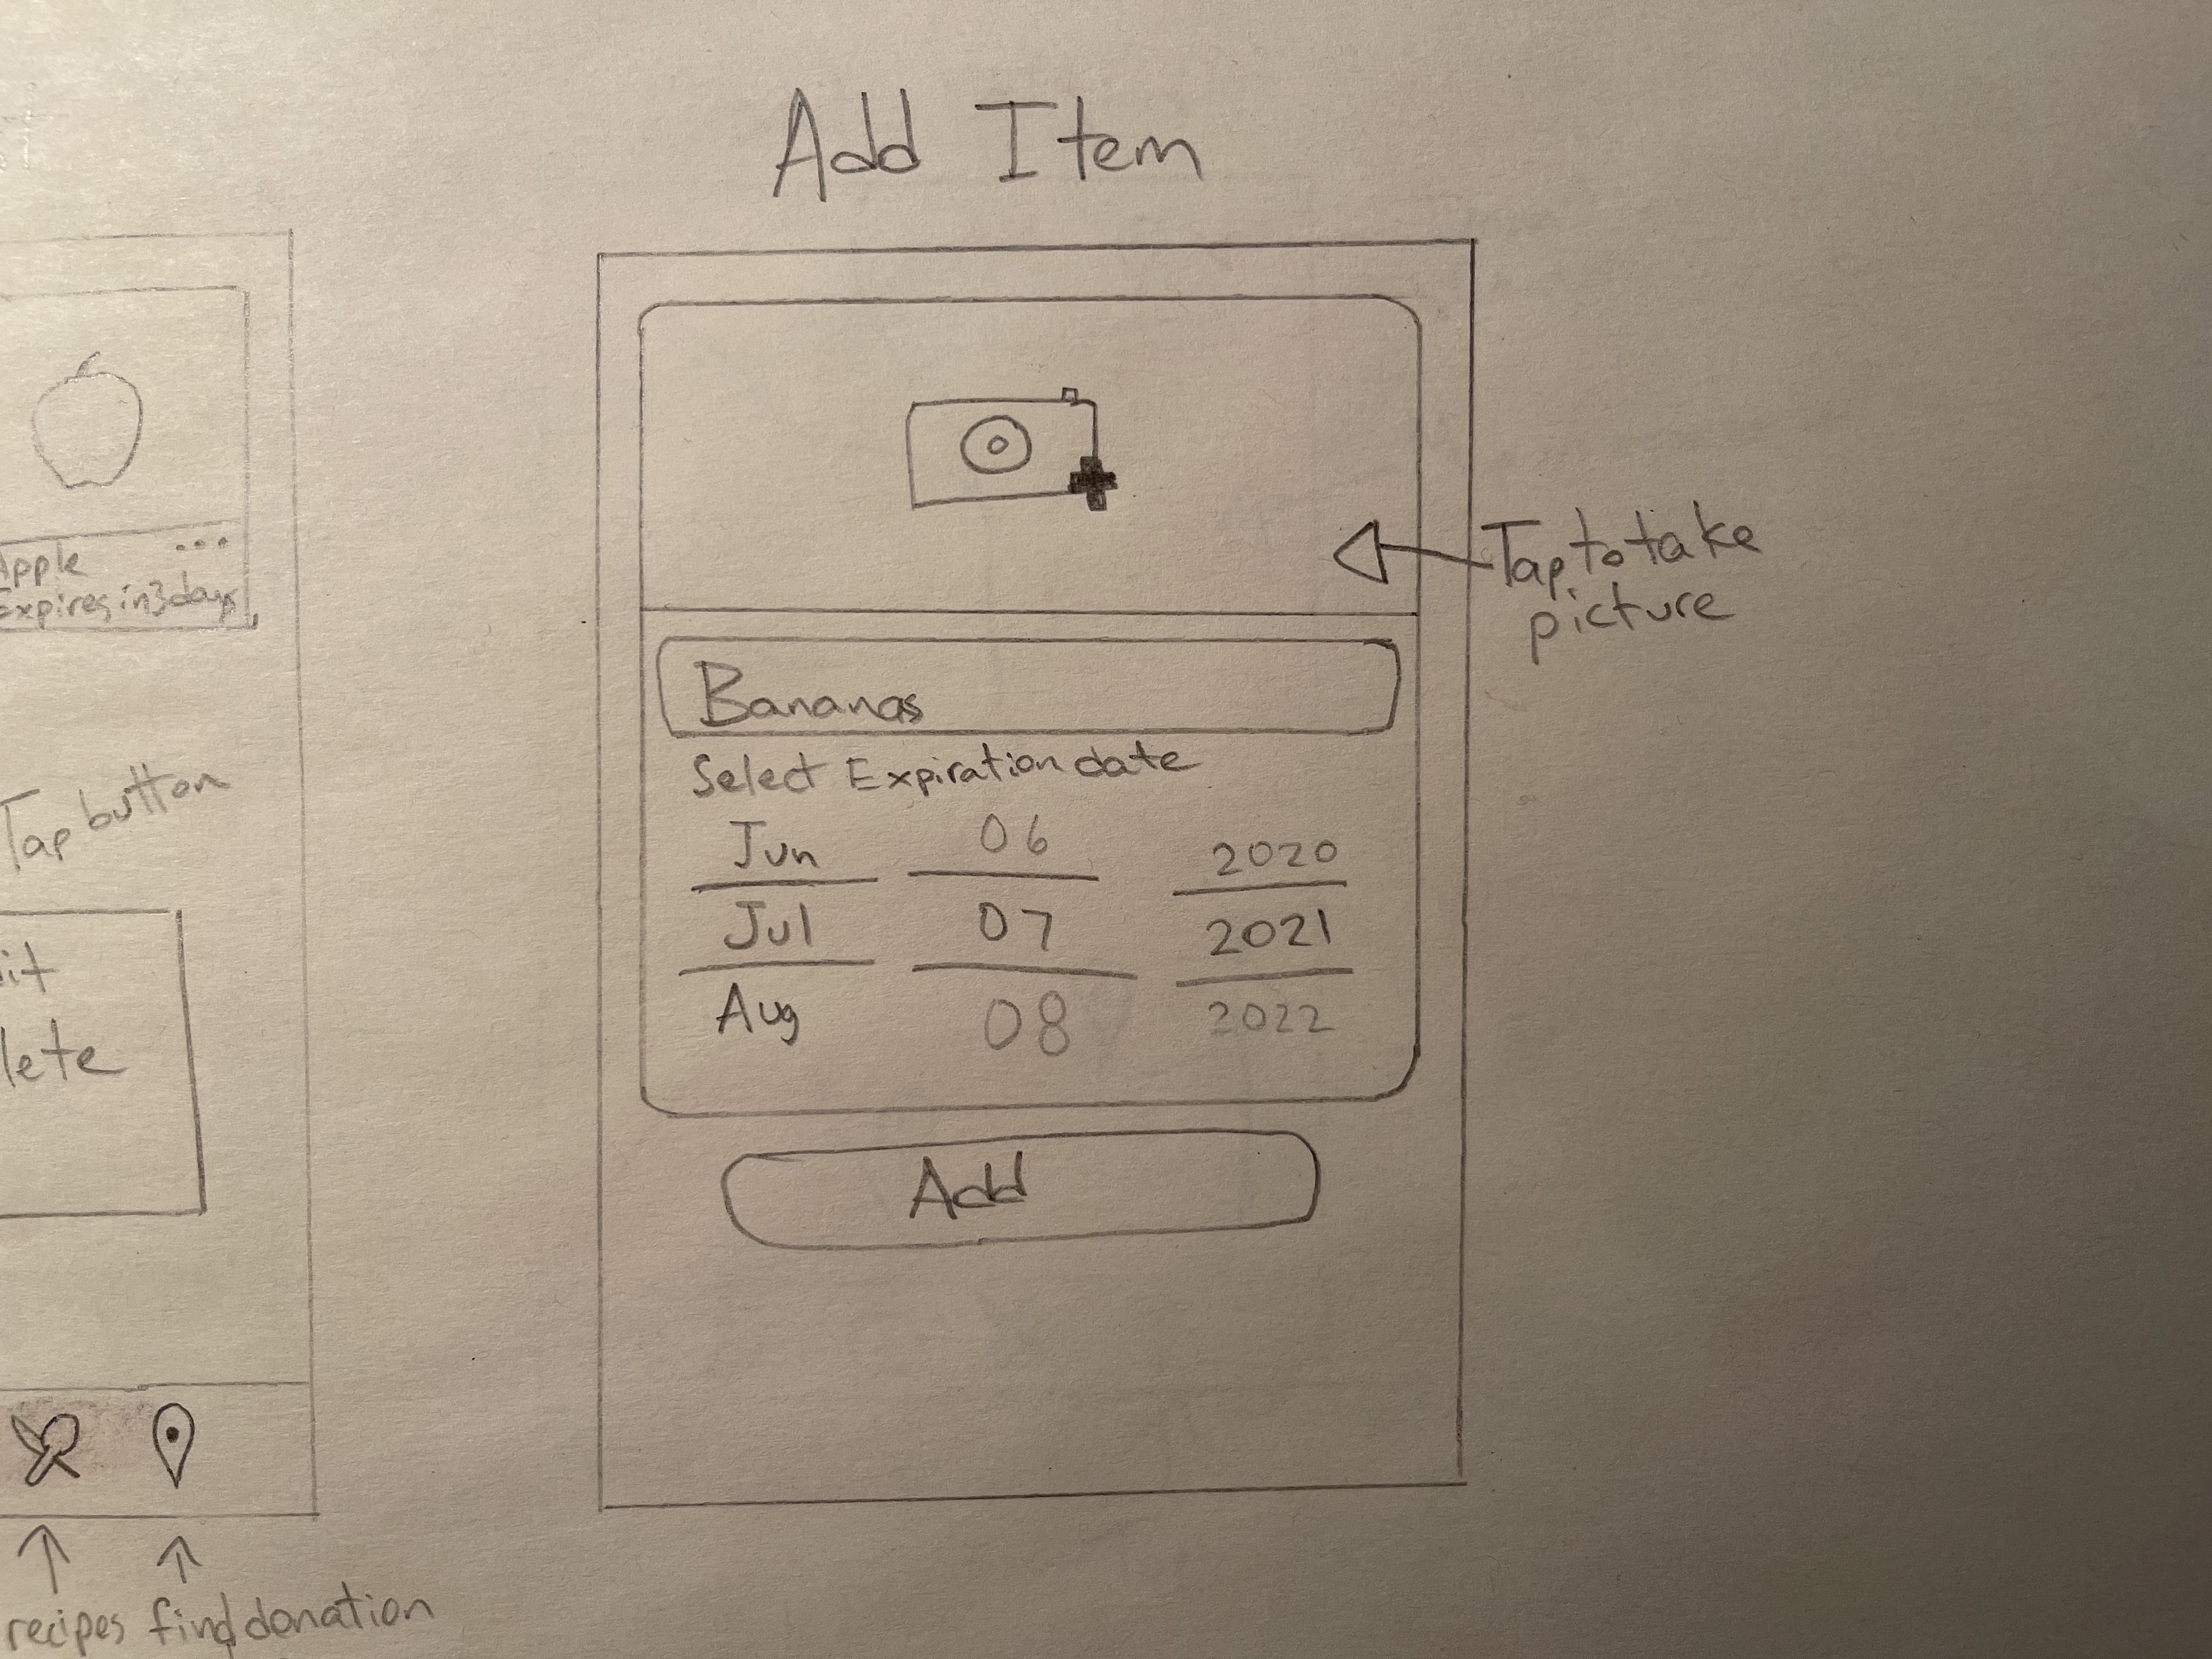 Add Item
Apple
Expires in 3 days
Tap button
recipes
find donation
Tap to take
picture
Bananas
Select Expiration date
Jun 06 2020
Jul 07 2021
Aug 08 2022
Add